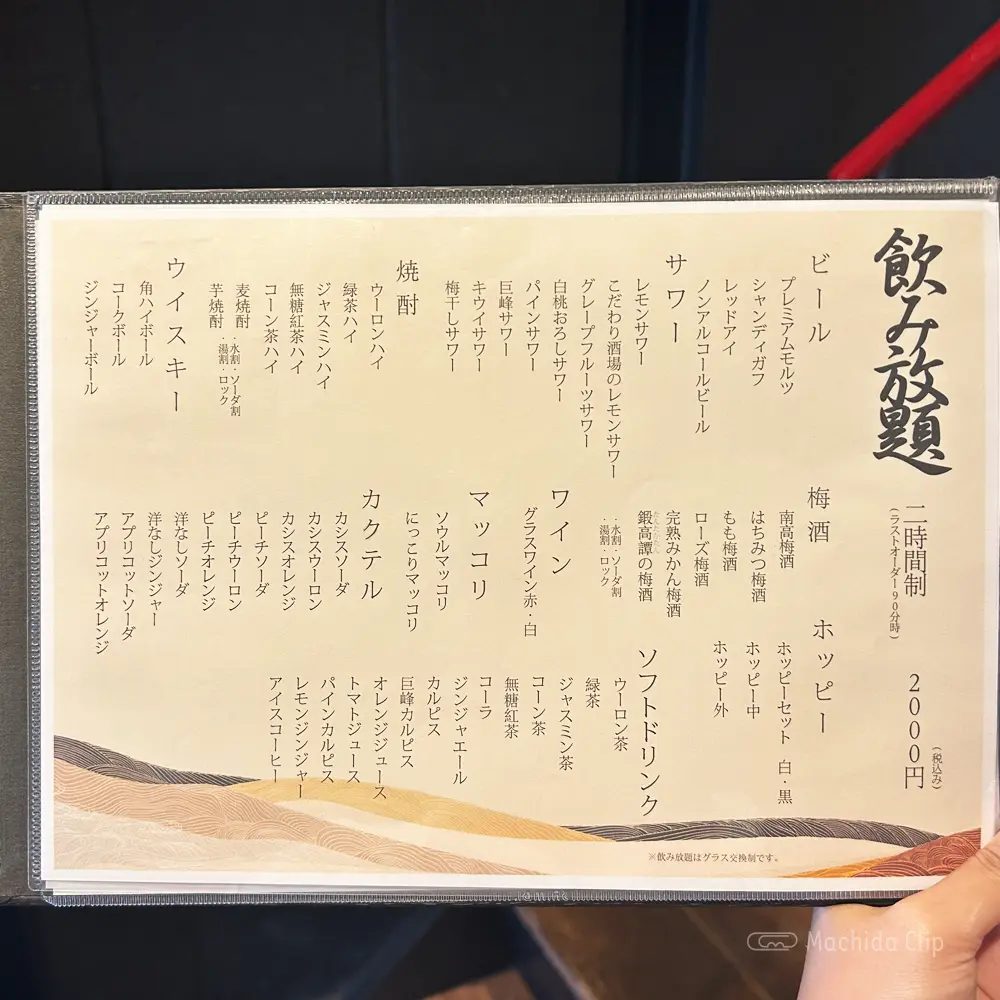 飲み放題
二時間制
(ラストオーダー90分時)
2000円
(税込み)
ビール
プレミアムモルツ
シャンディガフ
レッドアイ
ノンアルコールビール
サワー
レモンサワー
こだわり酒場のレモンサワー
グレープフルーツサワー
白桃おろしサワー
パインサワー
巨峰サワー
キウイサワー
梅干しサワー
焼酎
ウーロンハイ
緑茶ハイ
ジャスミンハイ
無糖紅茶ハイ
コーン茶ハイ
麦焼酎
芋焼酎
・水割・ソーダ割
・湯割・ロック
ウイスキー
角ハイボール
コークボール
ジンジャーボール
梅酒
南高梅酒
はちみつ梅酒
もも梅酒
ローズ梅酒
完熟みかん梅酒
鍛高譚の梅酒
・水割・ソーダ割
・湯割・ロック
ワイン
グラスワイン赤・白
マッコリ
ソウルマッコリ
にっこりマッコリ
カクテル
カシスソーダ
カシスウーロン
カシスオレンジ
ピーチソーダ
ピーチウーロン
ピーチオレンジ
洋なしソーダ
洋なしジンジャー
アプリコットソーダ
アプリコットオレンジ
ホッピー
ホッピーセット 白・黒
ホッピー中
ホッピー外
ソフトドリンク
ウーロン茶
緑茶
ジャスミン茶
コーン茶
無糖紅茶
コーラ
ジンジャエール
カルピス
巨峰カルピス
オレンジジュース
トマトジュース
パインカルピス
レモンジンジャー
アイスコーヒー
※飲み放題はグラス交換制です。
Machida Clip